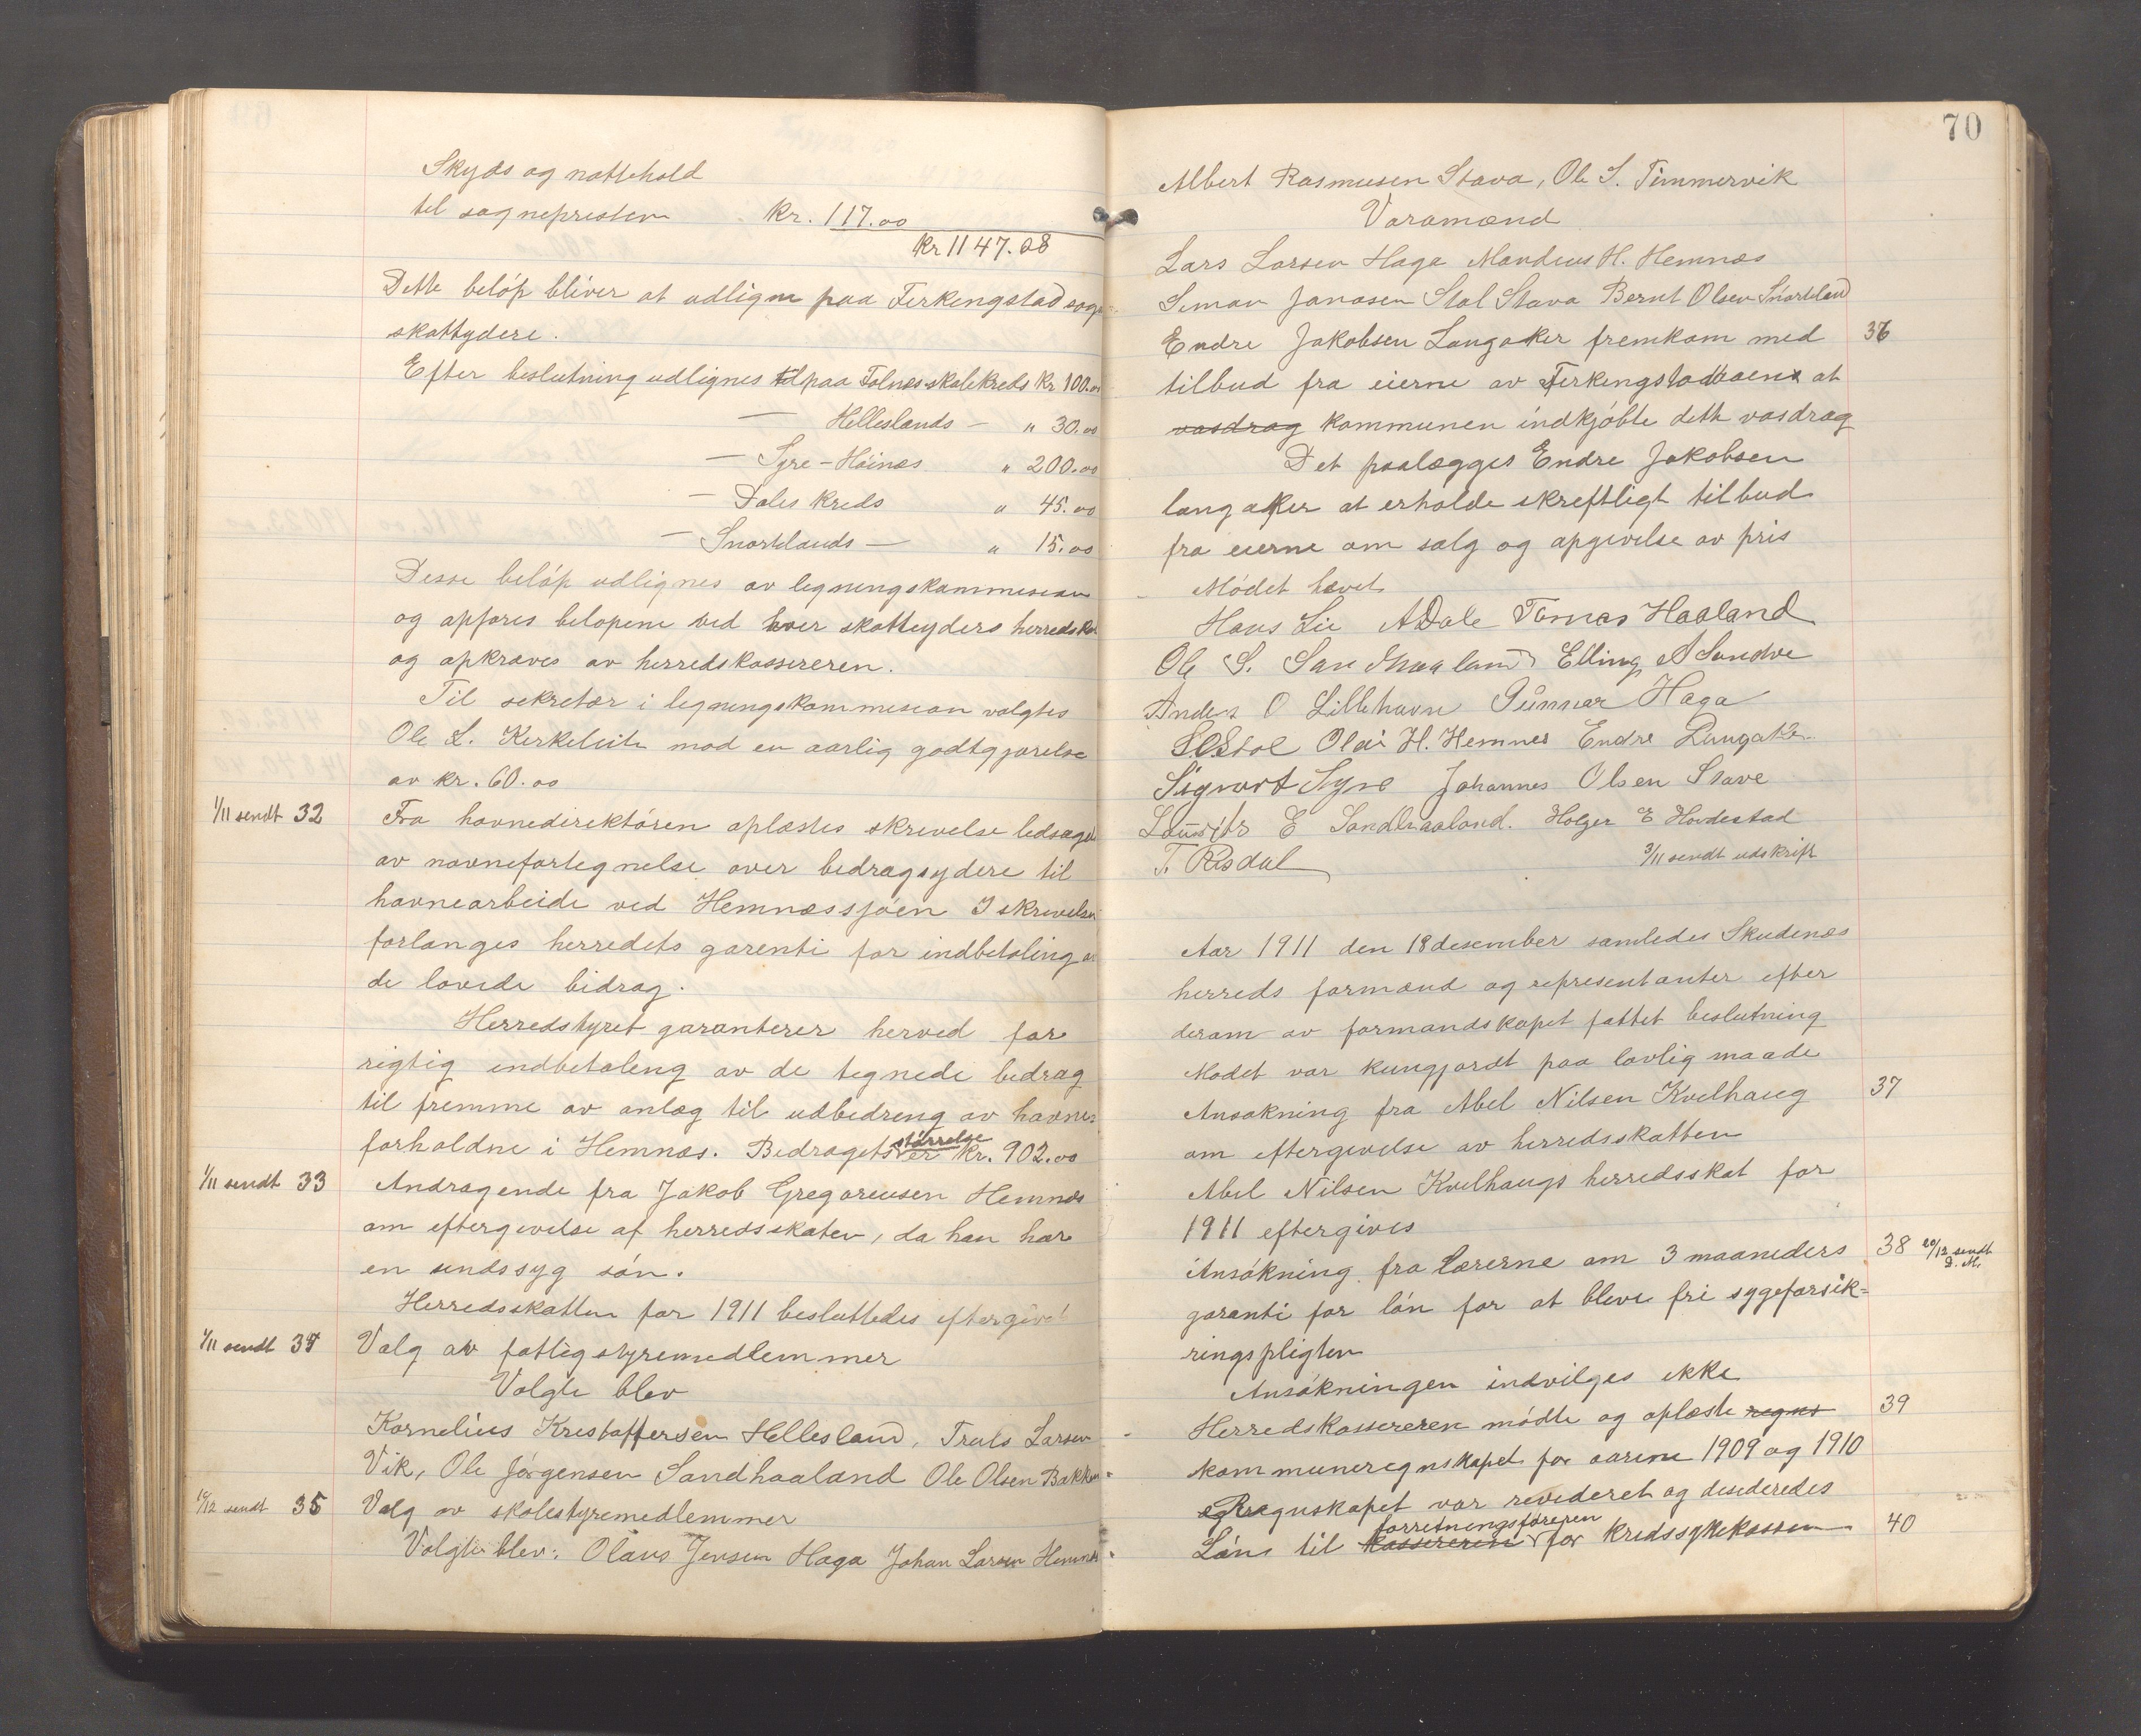 Skyds og nattehold
til sogneprästen kr. 117.00
kr 1147.08
Dette beløp bliver at udligne paa Ferkingstad sogns
skattydere.
Efter beslutning udlignes paa Falnes skolekreds kr 100.00
— Helleslands — " 30.00
— Syre-Høines " 200.00
— Dales kreds " 45.00
— Snortlands — " 15.00
Desse beløp udlignes av legningskommisionen
og opføres beløpene ved hver skatteyders herredskat
og opkræves av herredskassereren.
Til sekretær i legningskommision valgtes
Ole L. Kirkeleite mod en aarlig godtgjørelse
av kr. 60.00
1/11 sendt 32 Fra havnedirektøren oplæstes skrivelse ledsaget
av navnefortegnelse over bedragsydere til
havnearbeide ved Hemnæssjøen I skrivelsen
forlanges herredets garenti for indbetaling av
de lovede bidrag.
Herredstyret garanterer herved for
rigtig indbetaleng av de tegnede bedrag
til fremme av anlæg til udbedreng av havne-
forholdne i Hemnæs. Bedragets størrelse er kr. 902.00
1/11 sendt 33 Andragende fra Jakob Gregoreusen Hemnæs
om eftergivelse af herredsskaten, da han har
en sindssyg søn.
Herredsskatten for 1911 besluttedes eftergivet
1/11 sendt 34 Valg av fattigstyremedlemmer
Valgte blev
Kornelius Kristoffersen Hellesland, Truls Larsen
Vik, Ole Jørgensen Sandhaaland Ole Olsen Bakken
19/12 sendt 35 Valg av skolestyremedlemmer
Valgte blev: Olaus Jensen Haga Johan Larsen Hemnes
70
Albert Rasmusen Stava, Ole S. Timmervik
Varamænd
Lars Larsen Haga Mandius H. Hemnæs
Simon Janasen Stol Stava Bernt Olsen Snortland
Endre Jakobsen Langaker fremkom med 36
tilbud fra eierne av Ferkingstadvaen at
vasdrag kommunen indkjøbte dette vasdrag
Det paalægges Endre Jakobsen
langaker at erholde skreftligt tilbud
fra eierne om salg og opgivelse av pris
Mødet hævet
Hans Lie A Dale Tomas Haaland
Ole S. Sandhaaland Elling A Sandve
Anders O Lillehavn Gunnar Haga
S O Stol Olai H. Hemnes Endre Langaker
Sigvart Syre Johannes Olsen Stave
Lauritz E Sandhaaland. Holger E Hovdestad
T. Risdal 3/11 sendt udskrift
Aar 1911 den 18 desember samledes Skudenæs
herreds formænd og representanter efter
derom av formandskapet fattet beslutning
Mødet var kungjordt paa lovlig maade
Ansøkning fra Abel Nilsen Kvelhaug 37
om eftergivelse av herredsskatten
Abel Nilsen Kvelhaugs herredsskat for
1911 eftergives
Ansøkning fra lærerne om 3 maaneders 38 20/12 sendt D. M.
garanti for løn for at bleve fri sygeforsik=
ringspligten
Ansøkningen indvilges ikke
Herredskassereren mødte og oplæste regns 39
kommuneregnskapet for aarene 1909 og 1910
Regnskapet var revideret og desideredes
Løn til kassereren forretningsføreren for kredssykekassen 40